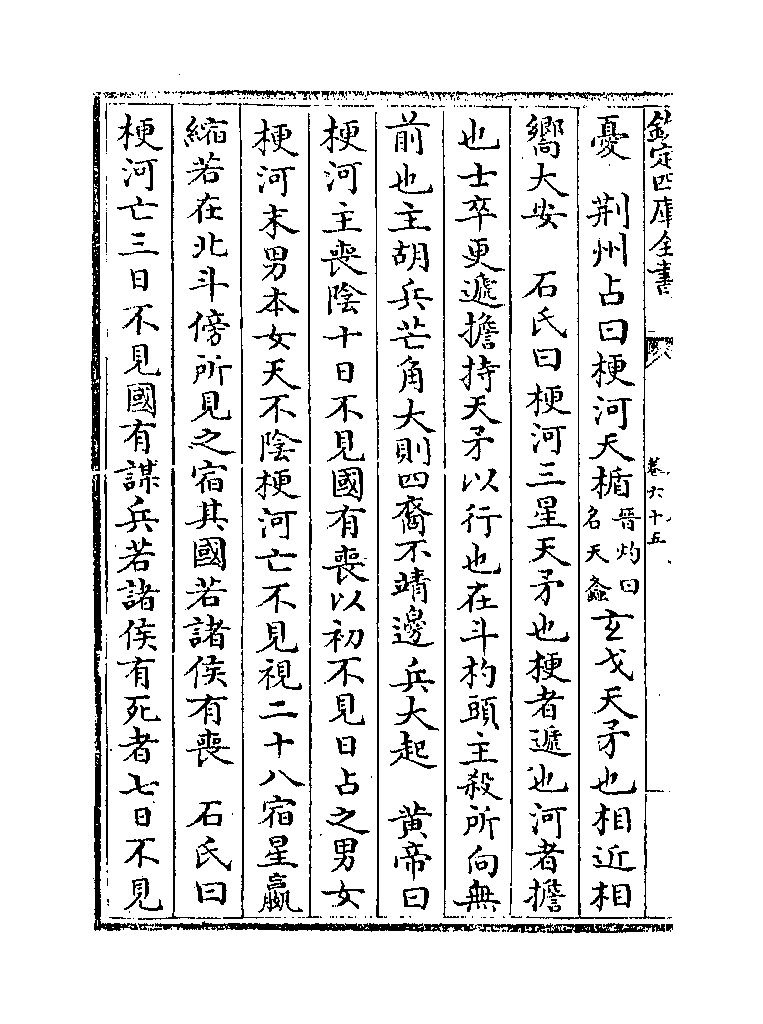 欽定四庫全書
卷六十五
憂　荆州占曰梗河天楯晉灼曰名天鏠玄戈天矛也相近相
嚮大安　石氏曰梗河三星天矛也梗者遞也河者擔
也士卒更遞擔持天矛以行也在斗杓頭主殺所向無
前也主胡兵芒角大則四裔不靖邊兵大起　黄帝曰
梗河主喪陰十日不見國有喪以初不見日占之男女
梗河末男本女天不陰梗河亡不見視二十八宿星贏
縮若在北斗傍所見之宿其國若諸侯有喪　石氏曰
梗河亡三日不見國有謀兵若諸侯有死者七日不見